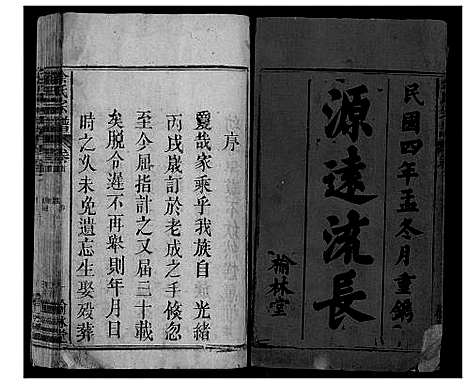 民國四年孟冬月重鐫
源遠流長
榆林堂
序
戛哉家乘乎我族自 光緒
丙戌歲訂於老成之手倐忽
至今屈指計之又届三十載
矣脫令遲不再舉則年月日
時之久未免遺忘生娶歿葬
氏宗譜卷首
榆林堂